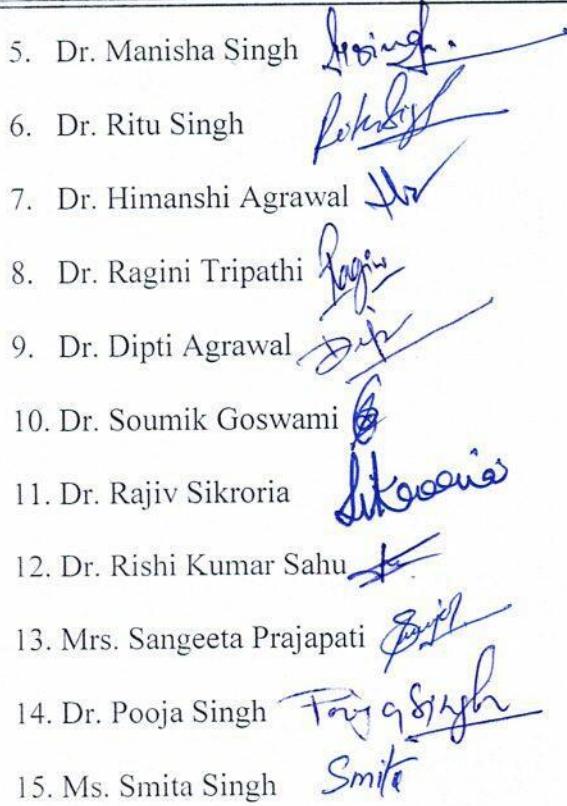 5. Dr. Manisha Singh
6. Dr. Ritu Singh
7. Dr. Himanshi Agrawal
8. Dr. Ragini Tripathi Ragini
9. Dr. Dipti Agrawal
10. Dr. Soumik Goswami
11. Dr. Rajiv Sikroria
12. Dr. Rishi Kumar Sahu
13. Mrs. Sangeeta Prajapati
14. Dr. Pooja Singh
15. Ms. Smita Singh Smita